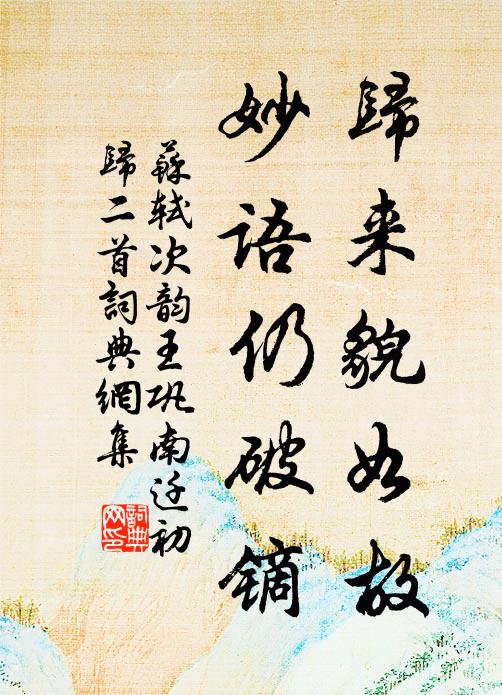 歸来貌如故
妙语仍破镝
蘇軾次韵王巩南迁初
歸二首詞典網集
詞典
网印